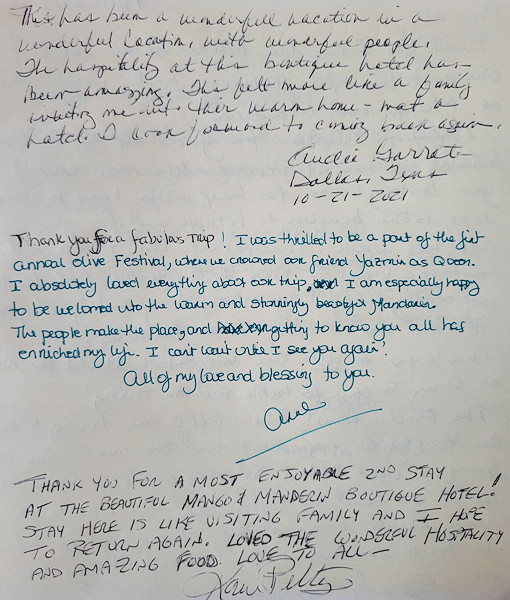 This has been a wonderfull vacation in a
wonderful location, with wonderful people.
The hospitality at this boutique hotel has
been amazing. This felt more like a family
inviting me into their warm home - not a
hotel. I look forward to coming back again.
Garrat
Dallas, Texas
10-21-2021
Thank you for a fabulous trip! I was thrilled to be a part of the first
annual olive Festival, where we crowned our friend Yazmin as Queen.
I absolutely loved everything about our trip, I am especially happy
to be welcomed into the warm and stunningly beautiful Mandarin.
The people make the place, and getting to know you all has
enriched my life. I can't wait until I see you again!
All of my love and blessing to you.
THANK YOU FOR A MOST ENJOYABLE 2ND STAY
AT THE BEAUTIFUL MANGO & MANDERIN BOUTIQUE HOTEL!
STAY HERE IS LIKE VISITING FAMILY AND I HOPE
TO RETURN AGAIN. LOVED THE WONDERFUL HOSTILITY
AND AMAZING FOOD. LOVE TO ALL -